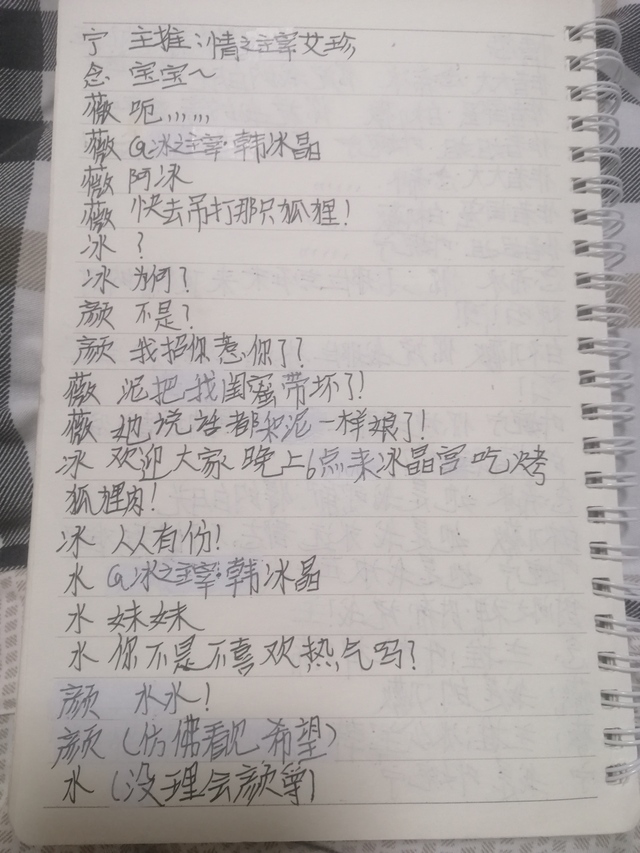 宁 主推：情之主宰艾珍
念 宝宝～
薇 呃,,,,,,
薇 @冰之主宰·韩冰晶
薇 阿冰
薇 快去吊打那只狐狸！
冰 ？
冰 为何？
颜 不是？
颜 我招你惹你了？
薇 泥把我闺蜜带坏了！
薇 她说话都和泥一样娘了！
冰 欢迎大家晚上6点来冰晶宫吃烤
狐狸肉！
冰 人人有份！
水 @冰之主宰·韩冰晶
水 妹妹
水 你不是不喜欢热气吗？
颜 水水！
颜（仿佛看见希望）
水（没理会颜爵）